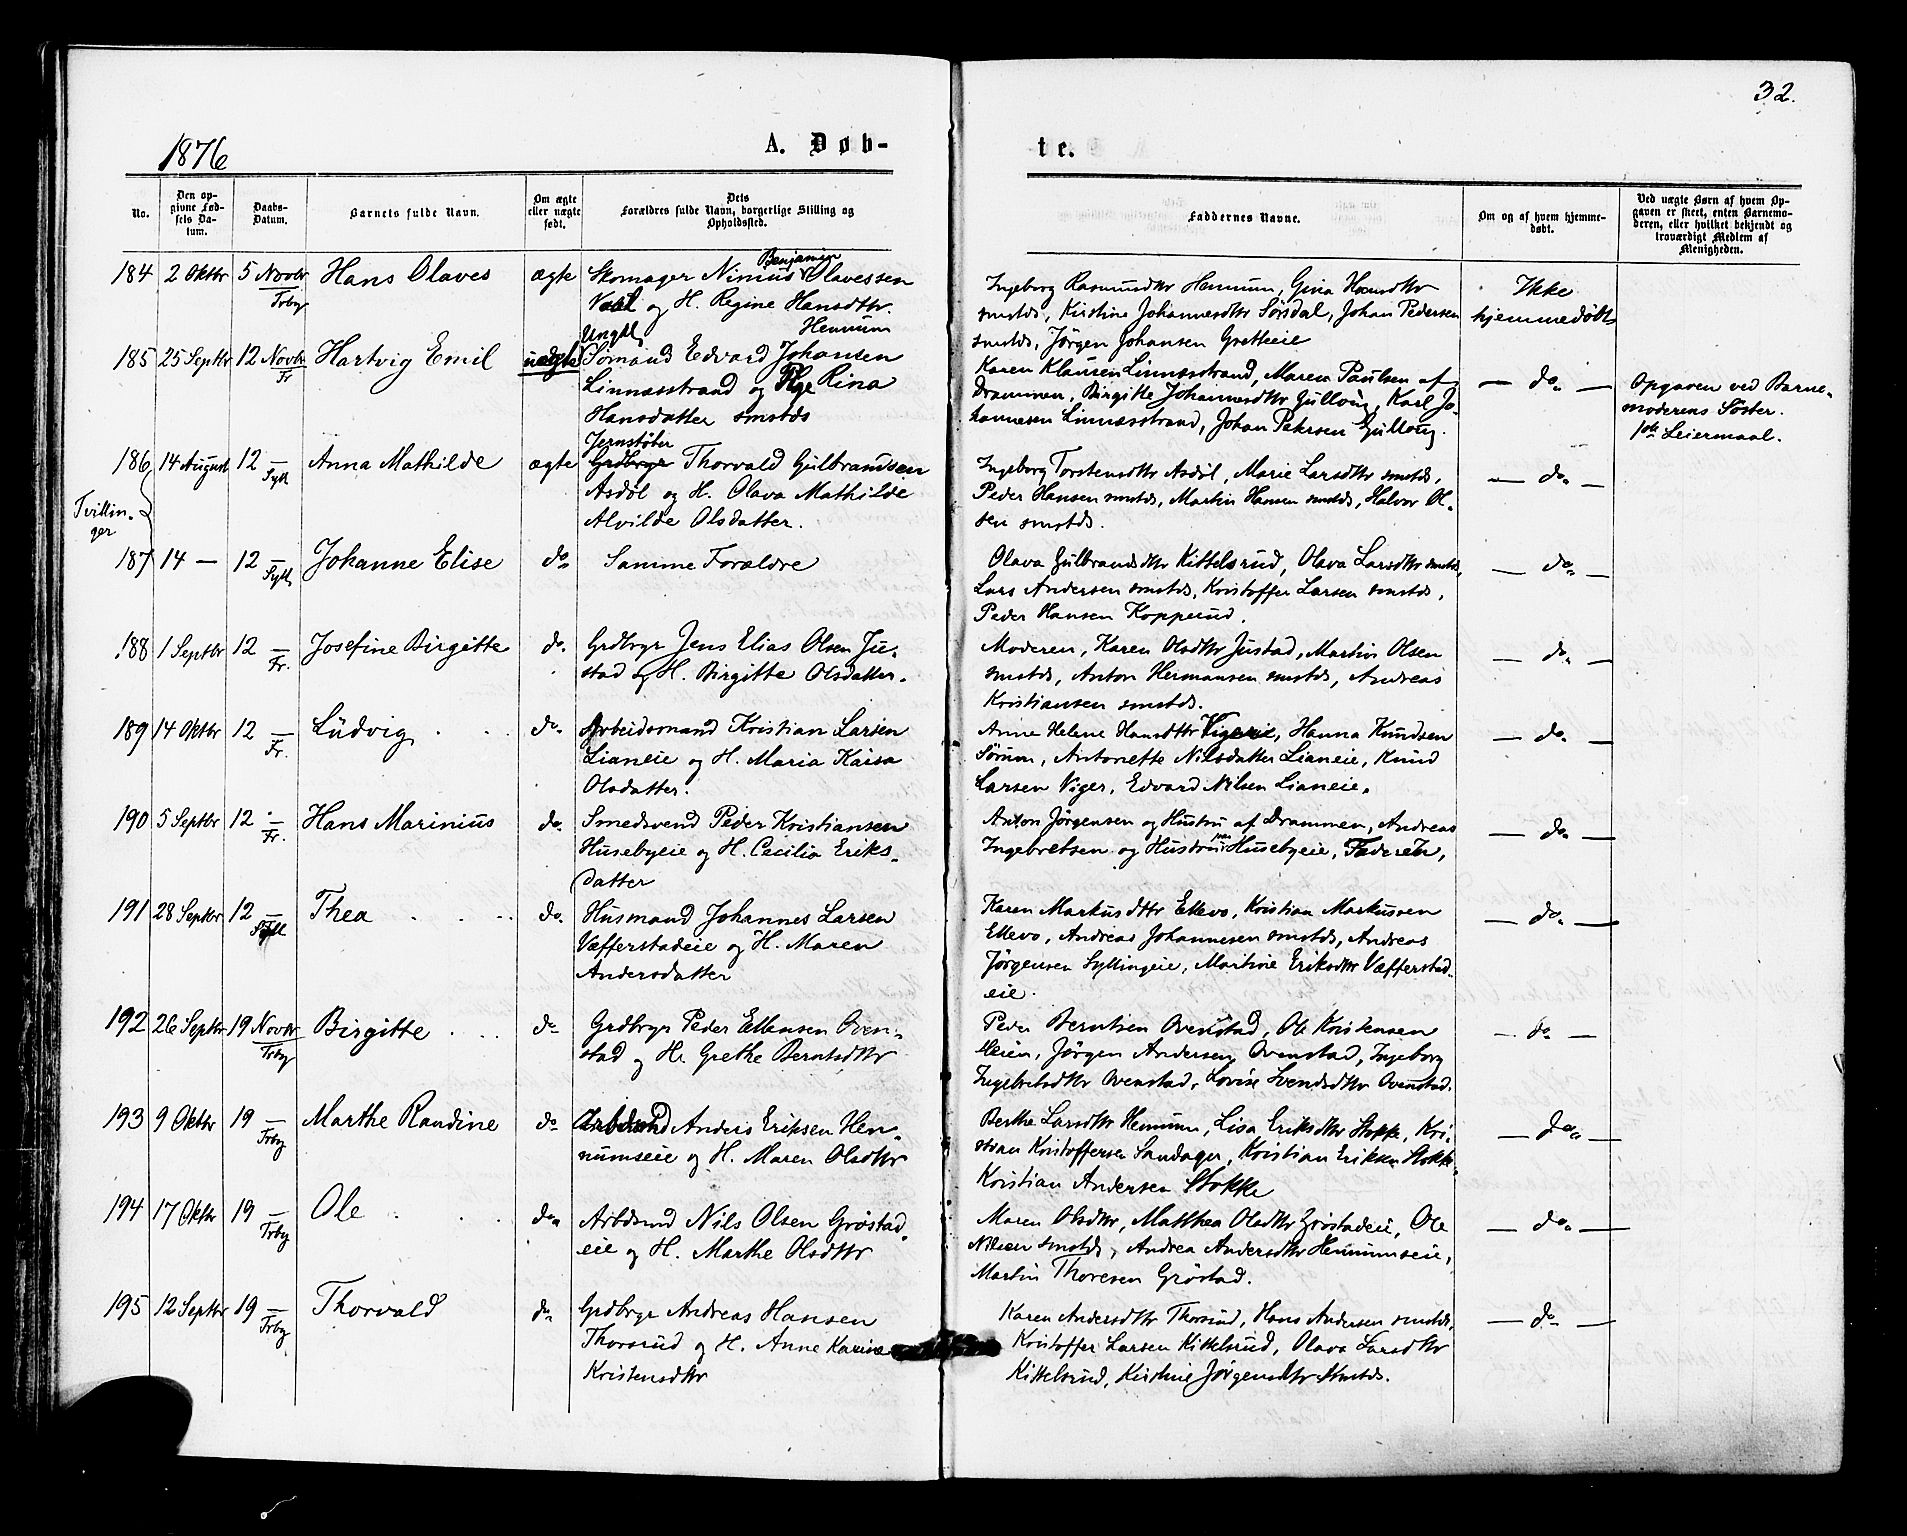 32.
1876
A. Døb-
te.
No.
Den op-
givne Fød-
sels Da-
tum.
Daabs-
Datum.
Barnets fulde Navn.
Om ægte
eller uægte
født.
Dets
Forældres fulde Navn, borgerlige Stilling og
Opholdssted.
Faddernes Navne.
Om og af hvem hjemme-
døbt.
Ved uægte Børn af hvem Op-
gaven er skeet, enten Barnemo-
deren, eller hvilket bekjendt og
troværdigt Medlem af
Menigheden.
184 2 Oktbr 5 Novbr Frby Hans Olaves ægte
Benjamin
Skomager Nimius Olavessen
og H. Regine Hansdttr.
Hennum
Ingeborg Rasmusdttr Hennum, Gina Hansdttr
smstds, Kirstine Johannesdttr Sørsdal, Johan Pedersen
smstds, Jørgen Johansen Gretteeie
Ikke
hjemmedøbt
185 25 Septbr 12 Novbr Fr Hartvig Emil uægte
Ungkl
Sømand Edvard Johansen
Linnæsstrand og Pige Rina
Hansdatter smstds
Karen Klausen Linnæsstrand, Maren Paulsen af
Drammen, Birgitte Johannesdttr Gullaug, Karl Jo-
hannesen Linnæsstrand, Johan Petersen Gullaug.
— do. —
Opgaven ved Barne-
moderens Søster.
1ste Leiermaal.
Tvillin-
ger
186 14 August 12 — Syll Anna Mathilde ægte
Jernstøber
Grdbrgr Thorvald Gulbrandsen
Asdøl og H. Olava Mathilde
Alvilde Olsdatter.
Ingeborg Torstensdttr Asdøl, Marie Larsdttr smstds,
Peder Hansen smstds, Martin Hansen smstds, Halvor Ol-
sen smstds.
— do. —
187 14 — 12 — Syll Johanne Elise do
Samme Forældre
Olava Gulbrandsdttr Kittelsrud, Olava Larsdttr smstds,
Lars Andersen smstds, Kristoffer Larsen smstds,
Peder Hansen Kopperud.
— do. —
188 1 Septbr 12 — Fr. Josefine Birgitte do.
Grdbrgr Jens Elias Olsen Ju-
stad og H. Birgitte Olsdatter.
Moderen, Karen Olsdttr Justad, Martin Olsen
smstds, Anton Hermansen smstds, Andreas
Kristiansen smstds.
— do. —
189 14 Oktbr 12 — Fr. Ludvig do.
Arbeidsmand Kristian Larsen
Lianeie og H. Maria Kaisa
Olsdatter.
Anne Helene Hansdttr Vigereie, Hanna Knudsen
Sørum, Antonette Nilsdatter Lianeie, Knud
Larsen Viger, Edvard Nilsen Lianeie.
— do. —
190 5 Septbr 12 — Fr. Hans Marinius do.
Smedsvend Peder Kristiansen
Husebyeie og H. Cecilia Eriks-
datter
Anton Jørgensen og Hustru af Drammen, Andreas
Ingebretsen og Hustru Husebyeie, Faderen,
— do. —
191 28 Septbr 12 — Syll Thea do.
Husmand Johannes Larsen
Væfferstadeie og H. Maren
Andersdatter
Karen Markusdttr Ellevo, Kristian Markussen
Ellevo, Andreas Johannesen smstds, Andreas
Jørgensen Syllingeie, Martine Eriksdttr Væfferstad-
eie.
— do. —
192 26 Septbr 19 Novbr Frby Birgitte do
Grdbrgr Peder Ellensen Oven-
stad og H. Grethe Berntsdttr
Peder Berntsen Ovenstad, Ole Kristensen
Heien, Jørgen Andersen Ovenstad, Ingeborg
Ingebretsdttr Ovenstad, Lovise Svendsdttr Ovenstad.
— do. —
193 9 Oktbr 19 — Frby Marthe Randine do
Anders Eriksen Hen-
numseie og H. Maren Olsdttr
Berthe Larsdttr Hennum, Lisa Eriksdttr Stokke, Kri-
stian Kristoffersen Sandager, Kristian Eriksen Stokke,
Kristian Andersen Stokke
— do. —
194 17 Oktbr 19 — Frby Ole do.
Arbdsmd Nils Olsen Grøstad-
eie og H. Marthe Olsdttr
Maren Olsdttr, Matthea Olsdttr Grøstadeie, Ole
Nilsen smstds, Andrea Andersdttr Hennumseie,
Martin Thoresen Grøstad.
— do. —
195 12 Septbr 19 — Frby Thorvald do.
Grdbrgr Andreas Hansen
Thorsrud og H. Anne Karine
Kristensdttr
Karen Andersdttr Thorsrud, Hans Andersen smstds,
Kristoffer Larsen Kittelsrud, Olava Larsdttr
Kittelsrud, Kirstine Jørgensdttr smstds.
— do. —